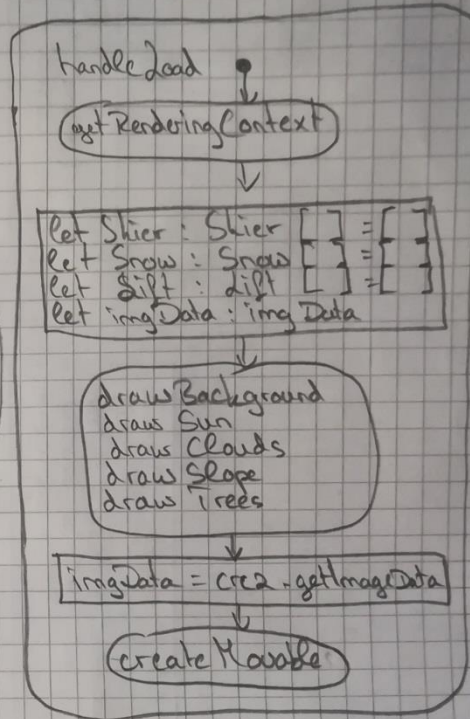 handleLoad
getRenderingContext
let Skier : Skier [ ] = [ ]
let Snow : Snow [ ] = [ ]
let Lift : Lift [ ] = [ ]
let imgData : img Data
draw Background
draw Sun
draw Clouds
draw Slope
draw Trees
imgData = crc2.getImageData
createMovable